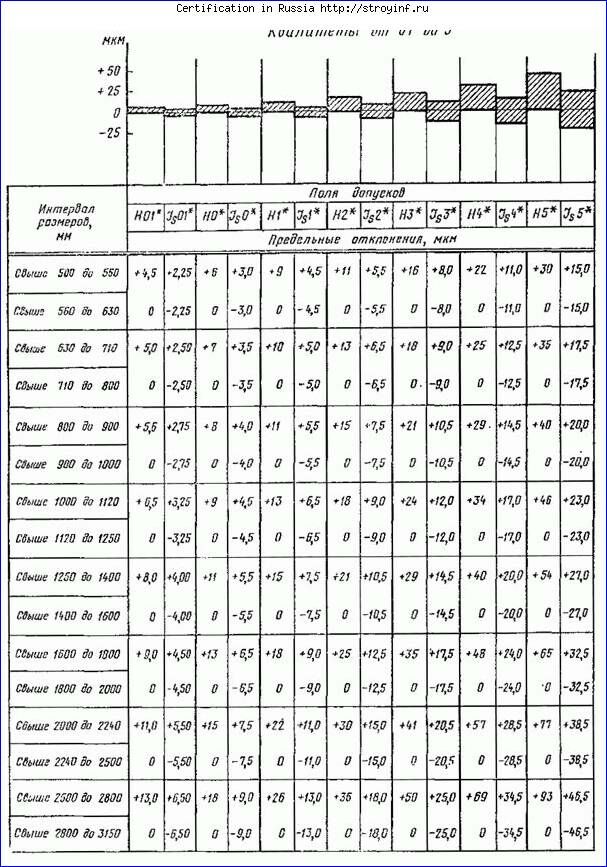 Certification in Russia http://stroyinf.ru
Квалитеты от 01 до 5
мкм
+50
+25
0
-25
Интервал размеров, мм
Поля допусков
H01* Js01* H0* Js0* H1* Js1* H2* Js2* H3* Js3* H4* Js4* H5* Js5*
Предельные отклонения, мкм
Свыше 500 до 560 +4,5 +2,25 +6 +3,0 +9 +4,5 +11 +5,5 +16 +8,0 +22 +11,0 +30 +15,0
Свыше 560 до 630 0 -2,25 0 -3,0 0 -4,5 0 -5,5 0 -8,0 0 -11,0 0 -15,0
Свыше 630 до 710 +5,0 +2,50 +7 +3,5 +10 +5,0 +13 +6,5 +18 +9,0 +25 +12,5 +35 +17,5
Свыше 710 до 800 0 -2,50 0 -3,5 0 -5,0 0 -6,5 0 -9,0 0 -12,5 0 -17,5
Свыше 800 до 900 +5,6 +2,75 +8 +4,0 +11 +5,5 +15 +7,5 +21 +10,5 +29 +14,5 +40 +20,0
Свыше 900 до 1000 0 -2,75 0 -4,0 0 -5,5 0 -7,5 0 -10,5 0 -14,5 0 -20,0
Свыше 1000 до 1120 +6,5 +3,25 +9 +4,5 +13 +6,5 +18 +9,0 +24 +12,0 +34 +17,0 +46 +23,0
Свыше 1120 до 1250 0 -3,25 0 -4,5 0 -6,5 0 -9,0 0 -12,0 0 -17,0 0 -23,0
Свыше 1250 до 1400 +8,0 +4,00 +11 +5,5 +15 +7,5 +21 +10,5 +29 +14,5 +40 +20,0 +54 +27,0
Свыше 1400 до 1600 0 -4,00 0 -5,5 0 -7,5 0 -10,5 0 -14,5 0 -20,0 0 -27,0
Свыше 1600 до 1800 +9,0 +4,50 +13 +6,5 +18 +9,0 +25 +12,5 +35 +17,5 +48 +24,0 +65 +32,5
Свыше 1800 до 2000 0 -4,50 0 -6,5 0 -9,0 0 -12,5 0 -17,5 0 -24,0 0 -32,5
Свыше 2000 до 2240 +11,0 +5,50 +15 +7,5 +22 +11,0 +30 +15,0 +41 +20,5 +57 +28,5 +77 +38,5
Свыше 2240 до 2500 0 -5,50 0 -7,5 0 -11,0 0 -15,0 0 -20,5 0 -28,5 0 -38,5
Свыше 2500 до 2800 +13,0 +6,50 +18 +9,0 +26 +13,0 +36 +18,0 +50 +25,0 +69 +34,5 +93 +46,5
Свыше 2800 до 3150 0 -6,50 0 -9,0 0 -13,0 0 -18,0 0 -25,0 0 -34,5 0 -46,5